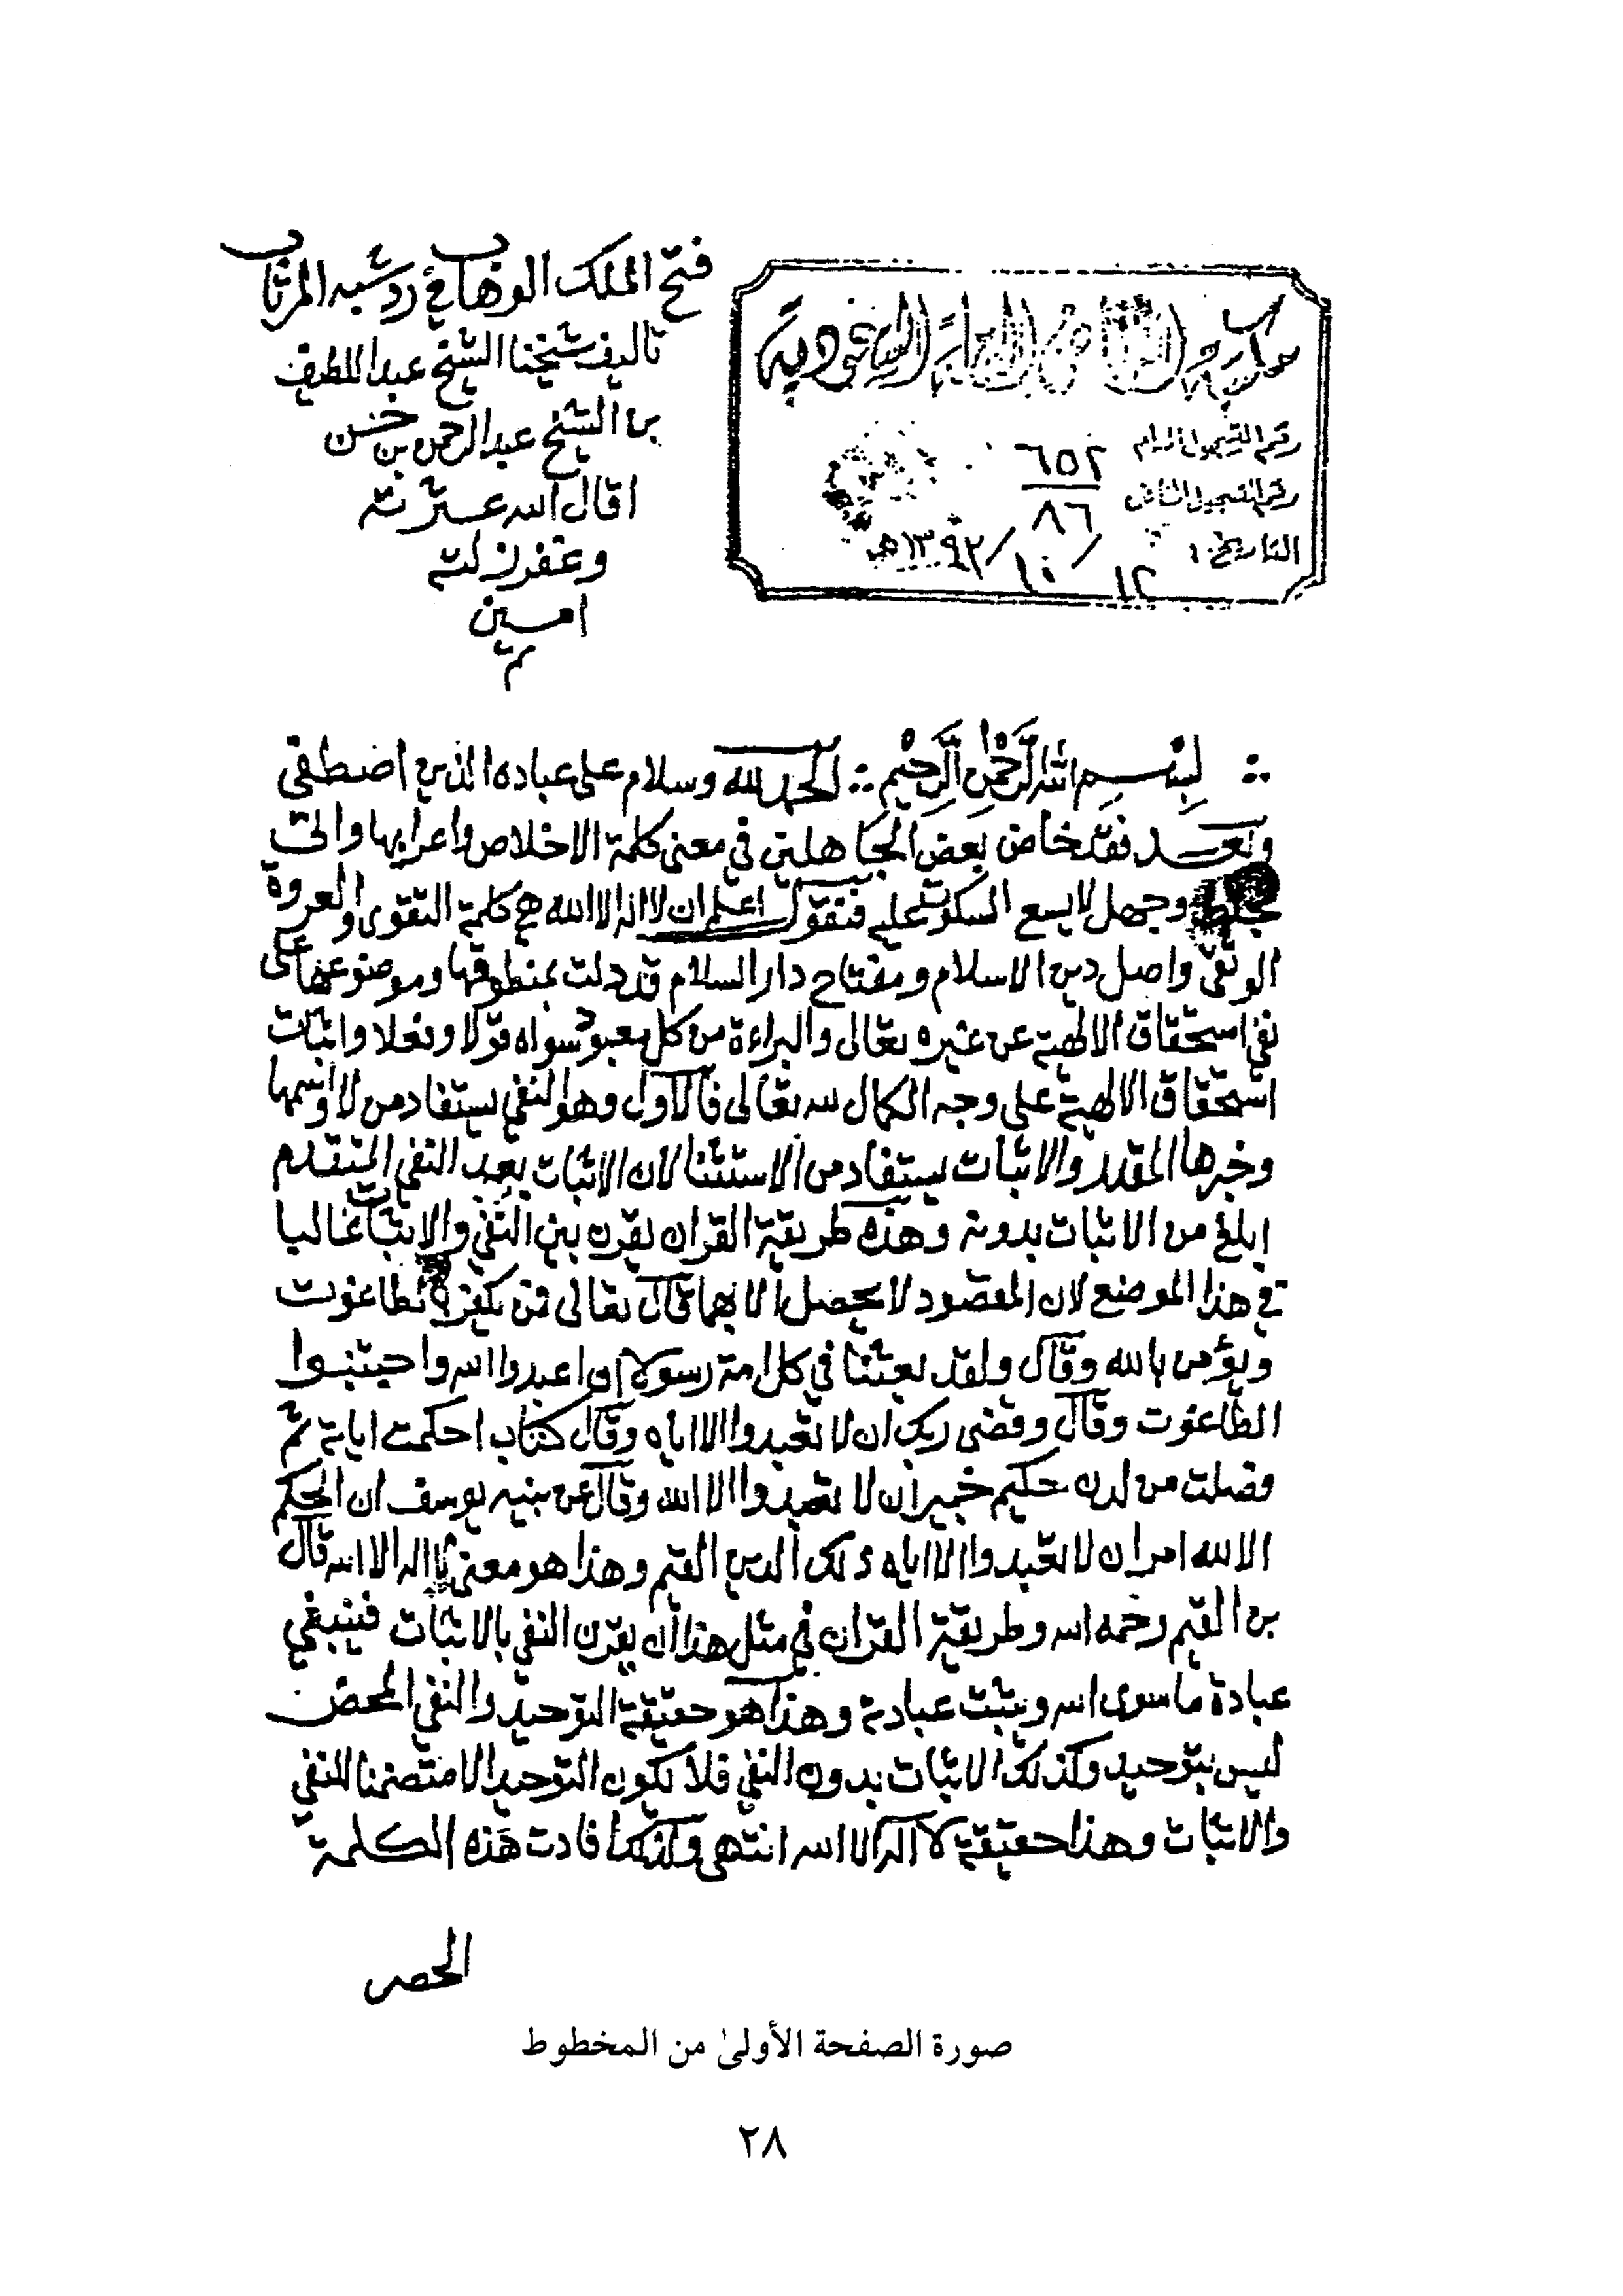 فتح الملك الوهاب في رد شبه المرتاب
تاليف شيخنا الشيخ عبد اللطيف
بن الشيخ عبد الرحمن بن حسن
اقال الله عسثرته
وغفر زلته
امسين
م
السعودية
رقم التسجيل العام ٦٥٢
رقم التسجيل الخاص ٨٦
التاريخ: ١٢ / ١٠ / ١٣٩٢هـ
بسم الله الرحمن الرحيم الحمد لله وسلام على عباده الذين اصطفى
وبعد فقد خاض بعض الجاهلين في معنى كلمة الاخلاص واعرابها واتى
بخلط وجهل لا يسع السكوت عليه فنقول اعلم ان لا اله الا الله هي كلمة التقوى والعروة
الوثقى واصل دين الاسلام ومفتاح دار السلام قد دلت بمنطوقها وموضوعها على
نفي استحقاق الالهية عن غيره تعالى والبراءة من كل معبود سواه قولا وفعلا واثبات
استحقاق الالهية على وجه الكمال لله تعالى فالاول وهو النفي يستفاد من لا واسمها
وخبرها المقدر والاثبات يستفاد من الاستثنا لان الاثبات بعد النفي المتقدم
ابلغ من الاثبات بدونه وهذه طريقة القران يقرن بين النفي والاثبات غالبا
في هذا الموضع لان المقصود لا يحصل الا بهما قال تعالى فمن يكفر بالطاغوت
ويؤمن بالله وقال ولقد بعثنا في كل امة رسولا ان اعبدوا الله واجتنبوا
الطاغوت وقال وقضى ربك ان لا تعبدوا الا اياه وقال كتاب احكمت اياته ثم
فصلت من لدن حكيم خبير ان لا تعبدوا الا الله وقال عن نبيه يوسف ان الحكم
الا لله امر ان لا تعبدوا الا اياه ذلك الدين القيم وهذا هو معنى لا اله الا الله قال
بن القيم رحمه الله وطريقة القران في مثل هذا ان يقرن النفي بالاثبات فينبغي
عبادة ما سوى الله ويثبت عبادته وهذا هو حقيقة التوحيد والنفي المحض
ليس بتوحيد وكذلك الاثبات بدون النفي فلا يكون التوحيد الا متضمنا للنفي
والاثبات وهذا حقيقة لا اله الا الله انتهى وكذلك افادت هذه الكلمة
الحصر
صورة الصفحة الأولىٰ من المخطوط
٢٨